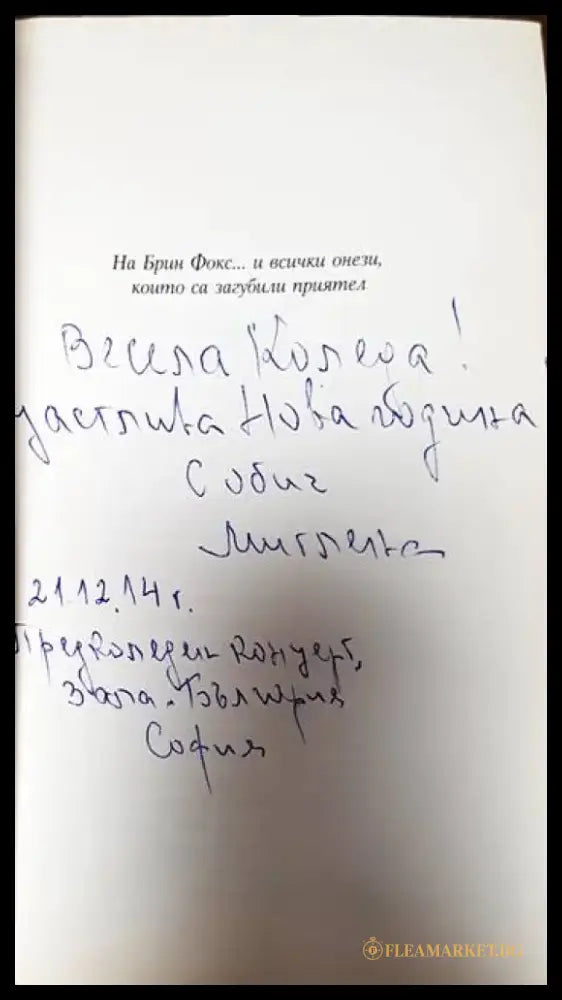 На Брин Фокс... и всички онези,
които са загубили приятел
Весела Коледа!
щастлива Нова година
С обич
Миглена
21.12.14 г.
Предколеден концерт,
Зала "България
София
FLEAMARKET.BG